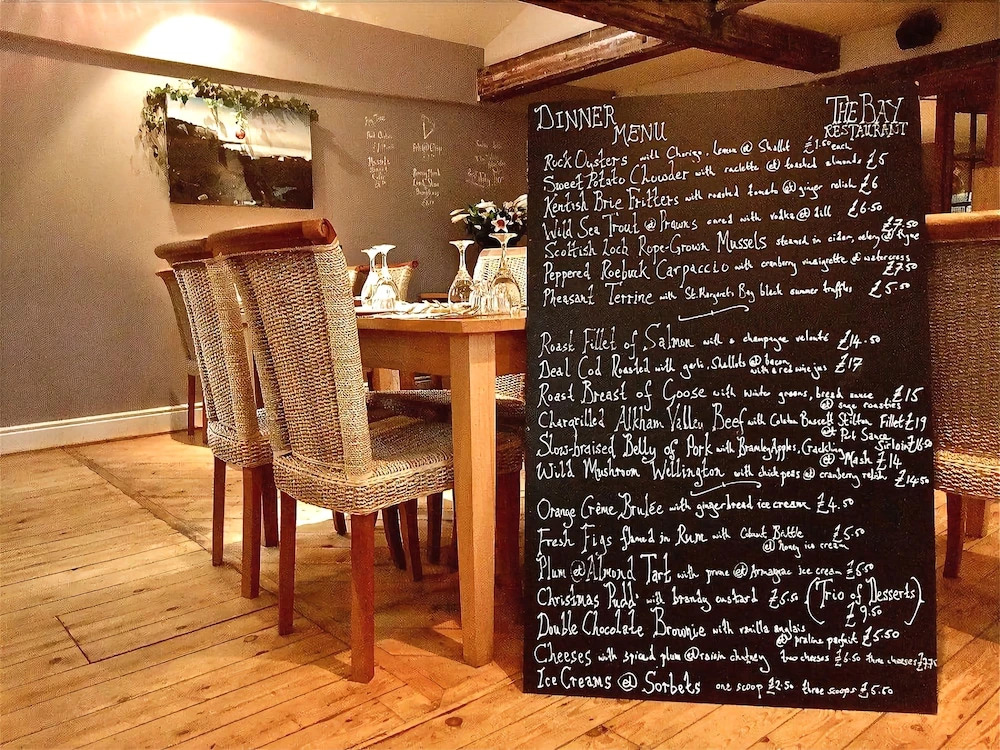 DINNER MENU
THE BAY RESTAURANT
Rock Oysters with Chorizo, Lemon @ Shallot £1.50 each
Sweet Potato Chowder with raclette @ toasted almonds £5
Kentish Brie Fritters with roasted tomato @ ginger relish £6
Wild Sea Trout @ Prawns cured with vodka @ dill £6.50
Scottish Loch Rope-Grown Mussels steamed in cider, celery @ thyme £7.50
Peppered Roebuck Carpaccio with cranberry vinaigrette @ watercress £7.50
Pheasant Terrine with St. Margaret's Bay black summer truffles £5.50
Roast Fillet of Salmon with a champagne velouté £14.50
Deal Cod Roasted with garlic, Shallots @ bacon £17
with a red wine jus
Roast Breast of Goose with winter greens, bread sauce £15
@ sage roasties
Chargrilled Alkham Valley Beef with Colston Bassett Stilton Fillet £19
@ Port Sauce Sirloin £16.50
Slow-braised Belly of Pork with Bramley Apples, Crackling
@ Mash £14
Wild Mushroom Wellington with chickpeas @ cranberry relish £14.50
Orange Crème Brulée with gingerbread ice cream £4.50
Fresh Figs flamed in Rum with Cobnut Brittle £5.50
@ honey ice cream
Plum @ Almond Tart with prune @ Armagnac ice cream £6.50
Christmas Pudd' with brandy custard £5.50
(Trio of Desserts)
£9.50
Double Chocolate Brownie with vanilla anglais
@ praline parfait £5.50
Cheeses with spiced plum @ raisin chutney two cheeses £6.50 three cheeses £7.75
Ice Creams @ Sorbets one scoop £2.50 three scoops £5.50